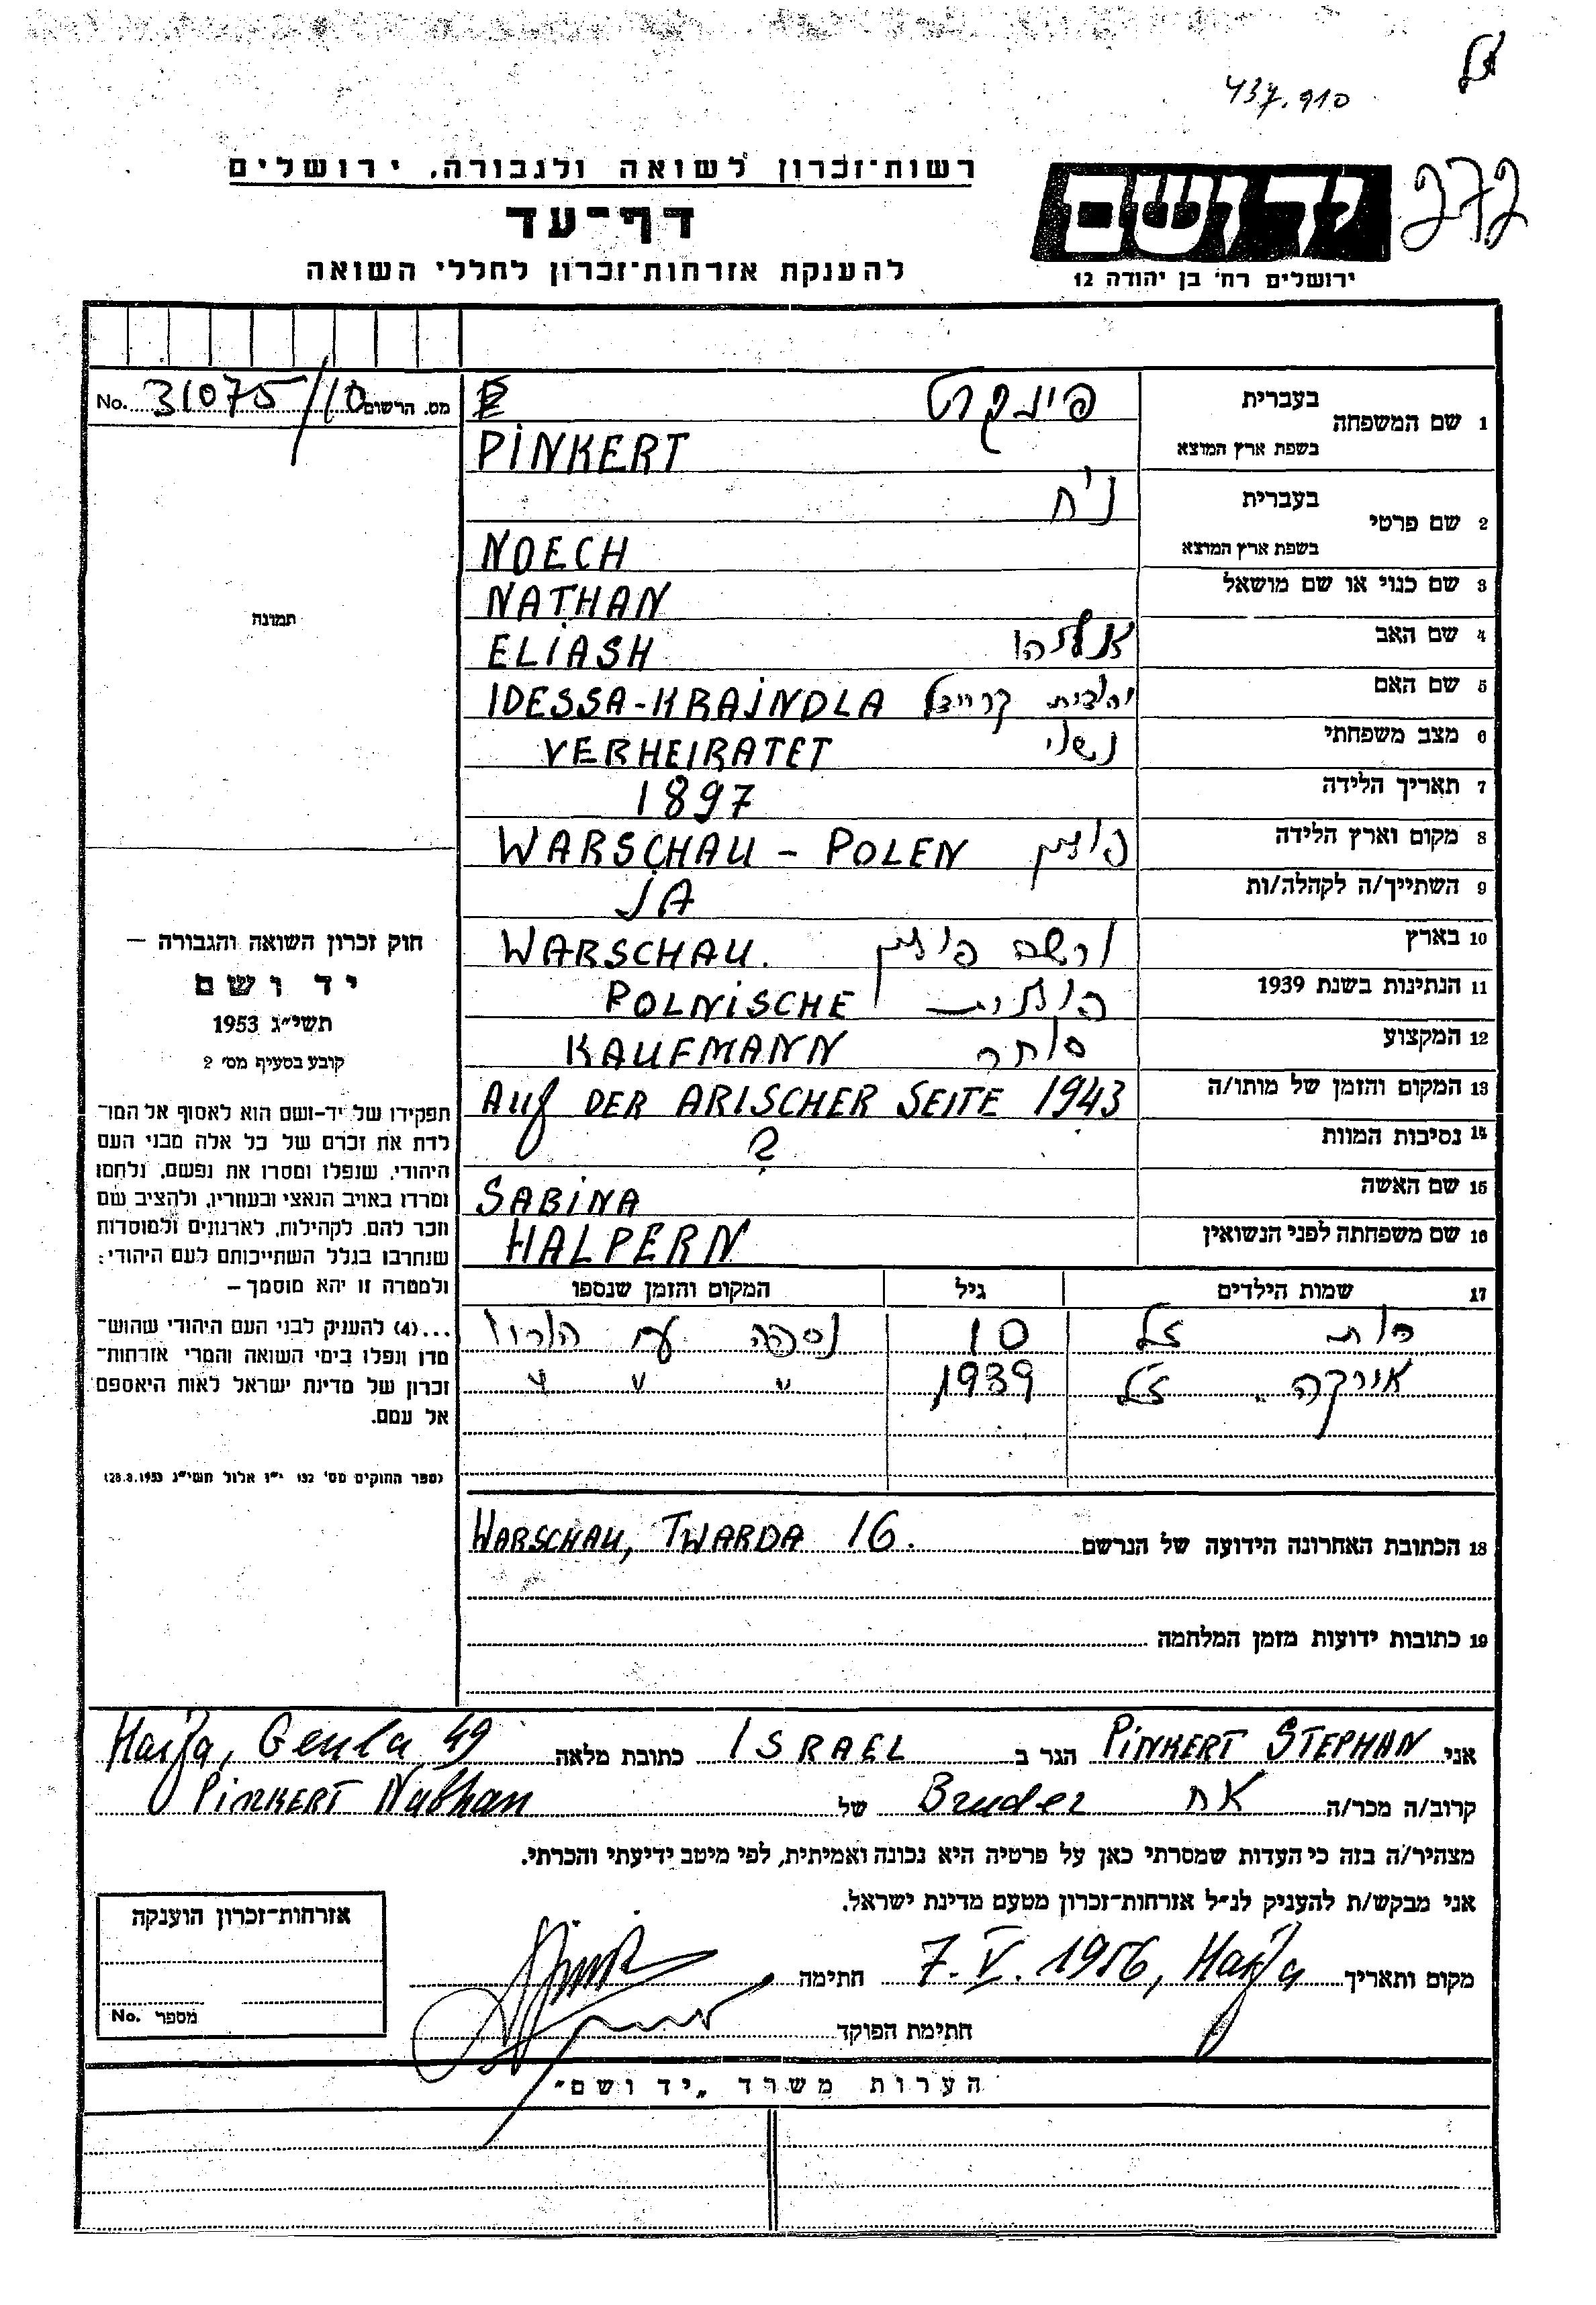 437.910
272
יד ושם
ירושלים רח' בן יהודה 12
רשות־זכרון לשואה ולגבורה, ירושלים
דף־עד
להענקת אזרחות־זכרון לחללי השואה
No. 31075/10 מס. הרשום
1 שם המשפחה
בעברית פינקרט
בשפת ארץ המוצא PINKERT
2 שם פרטי
בעברית נ'ח
בשפת ארץ המוצא NOECH
3 שם כנוי או שם מושאל NATHAN
4 שם האב אליהו ELIASH
5 שם האם יהודית קריינדל IDESSA-KRAINDLA
6 מצב משפחתי נשוי VERHEIRATET
7 תאריך הלידה 1897
8 מקום וארץ הלידה פולין WARSCHAU - POLEN
9 השתייך/ה לקהלה/ות JA
10 בארץ ורשה פולין WARSCHAU.
11 הנתינות בשנת 1939 פולנית POLNISCHE
12 המקצוע סוחר KAUFMANN
13 המקום והזמן של מותו/ה AUF DER ARISCHER SEITE 1943
14 נסיבות המוות ?
15 שם האשה SABINA
16 שם משפחתה לפני הנשואין HALPERN
17 שמות הילדים גיל המקום והזמן שנספו
רות ז"ל 10 נספה עם הוריו
אורקה ז"ל 1939 " " "
18 הכתובת האחרונה הידועה של הנרשם WARSCHAU, TWARDA 16.
19 כתובות ידועות מזמן המלחמה
תמונה
חוק זכרון השואה והגבורה —
יד ושם
תשי"ג 1953
קובע בסעיף מס' 2
תפקידו של יד-ושם הוא לאסוף אל המו־
לדת את זכרם של כל אלה מבני העם
היהודי, שנפלו ומסרו את נפשם, נלחמו
ומרדו באויב הנאצי ובעוזריו, ולהציב שם
וזכר להם, לקהילות, לארגונים ולמוסדות
שנחרבו בגלל השתייכותם לעם היהודי:
ולמטרה זו יהא מוסמך —
...(4) להענק לבני העם היהודי שהוש־
מדו ונפלו בימי השואה והמרי אזרחות־
זכרון של מדינת ישראל לאות היאספם
אל עמם.
(ספר החוקים מס' 132 י"ז אלול תשי"ג 28.8.1953)
אני PINKERT STEPHAN הגר ב ISRAEL כתובת מלאה Haifa, Geula 49
קרוב/ה מכר/ה אח Bruder של PINKERT Nathan
מצהיר/ה בזה כי העדות שמסרתי כאן על פרטיה היא נכונה ואמיתית, לפי מיטב ידיעתי והכרתי.
אני מבקש/ת להעניק לנ"ל אזרחות־זכרון מטעם מדינת ישראל.
מקום ותאריך 7. V. 1956, Haifa חתימה
חתימת הפוקד
אזרחות־זכרון הוענקה
No. מספר
הערות משרד „יד ושם"